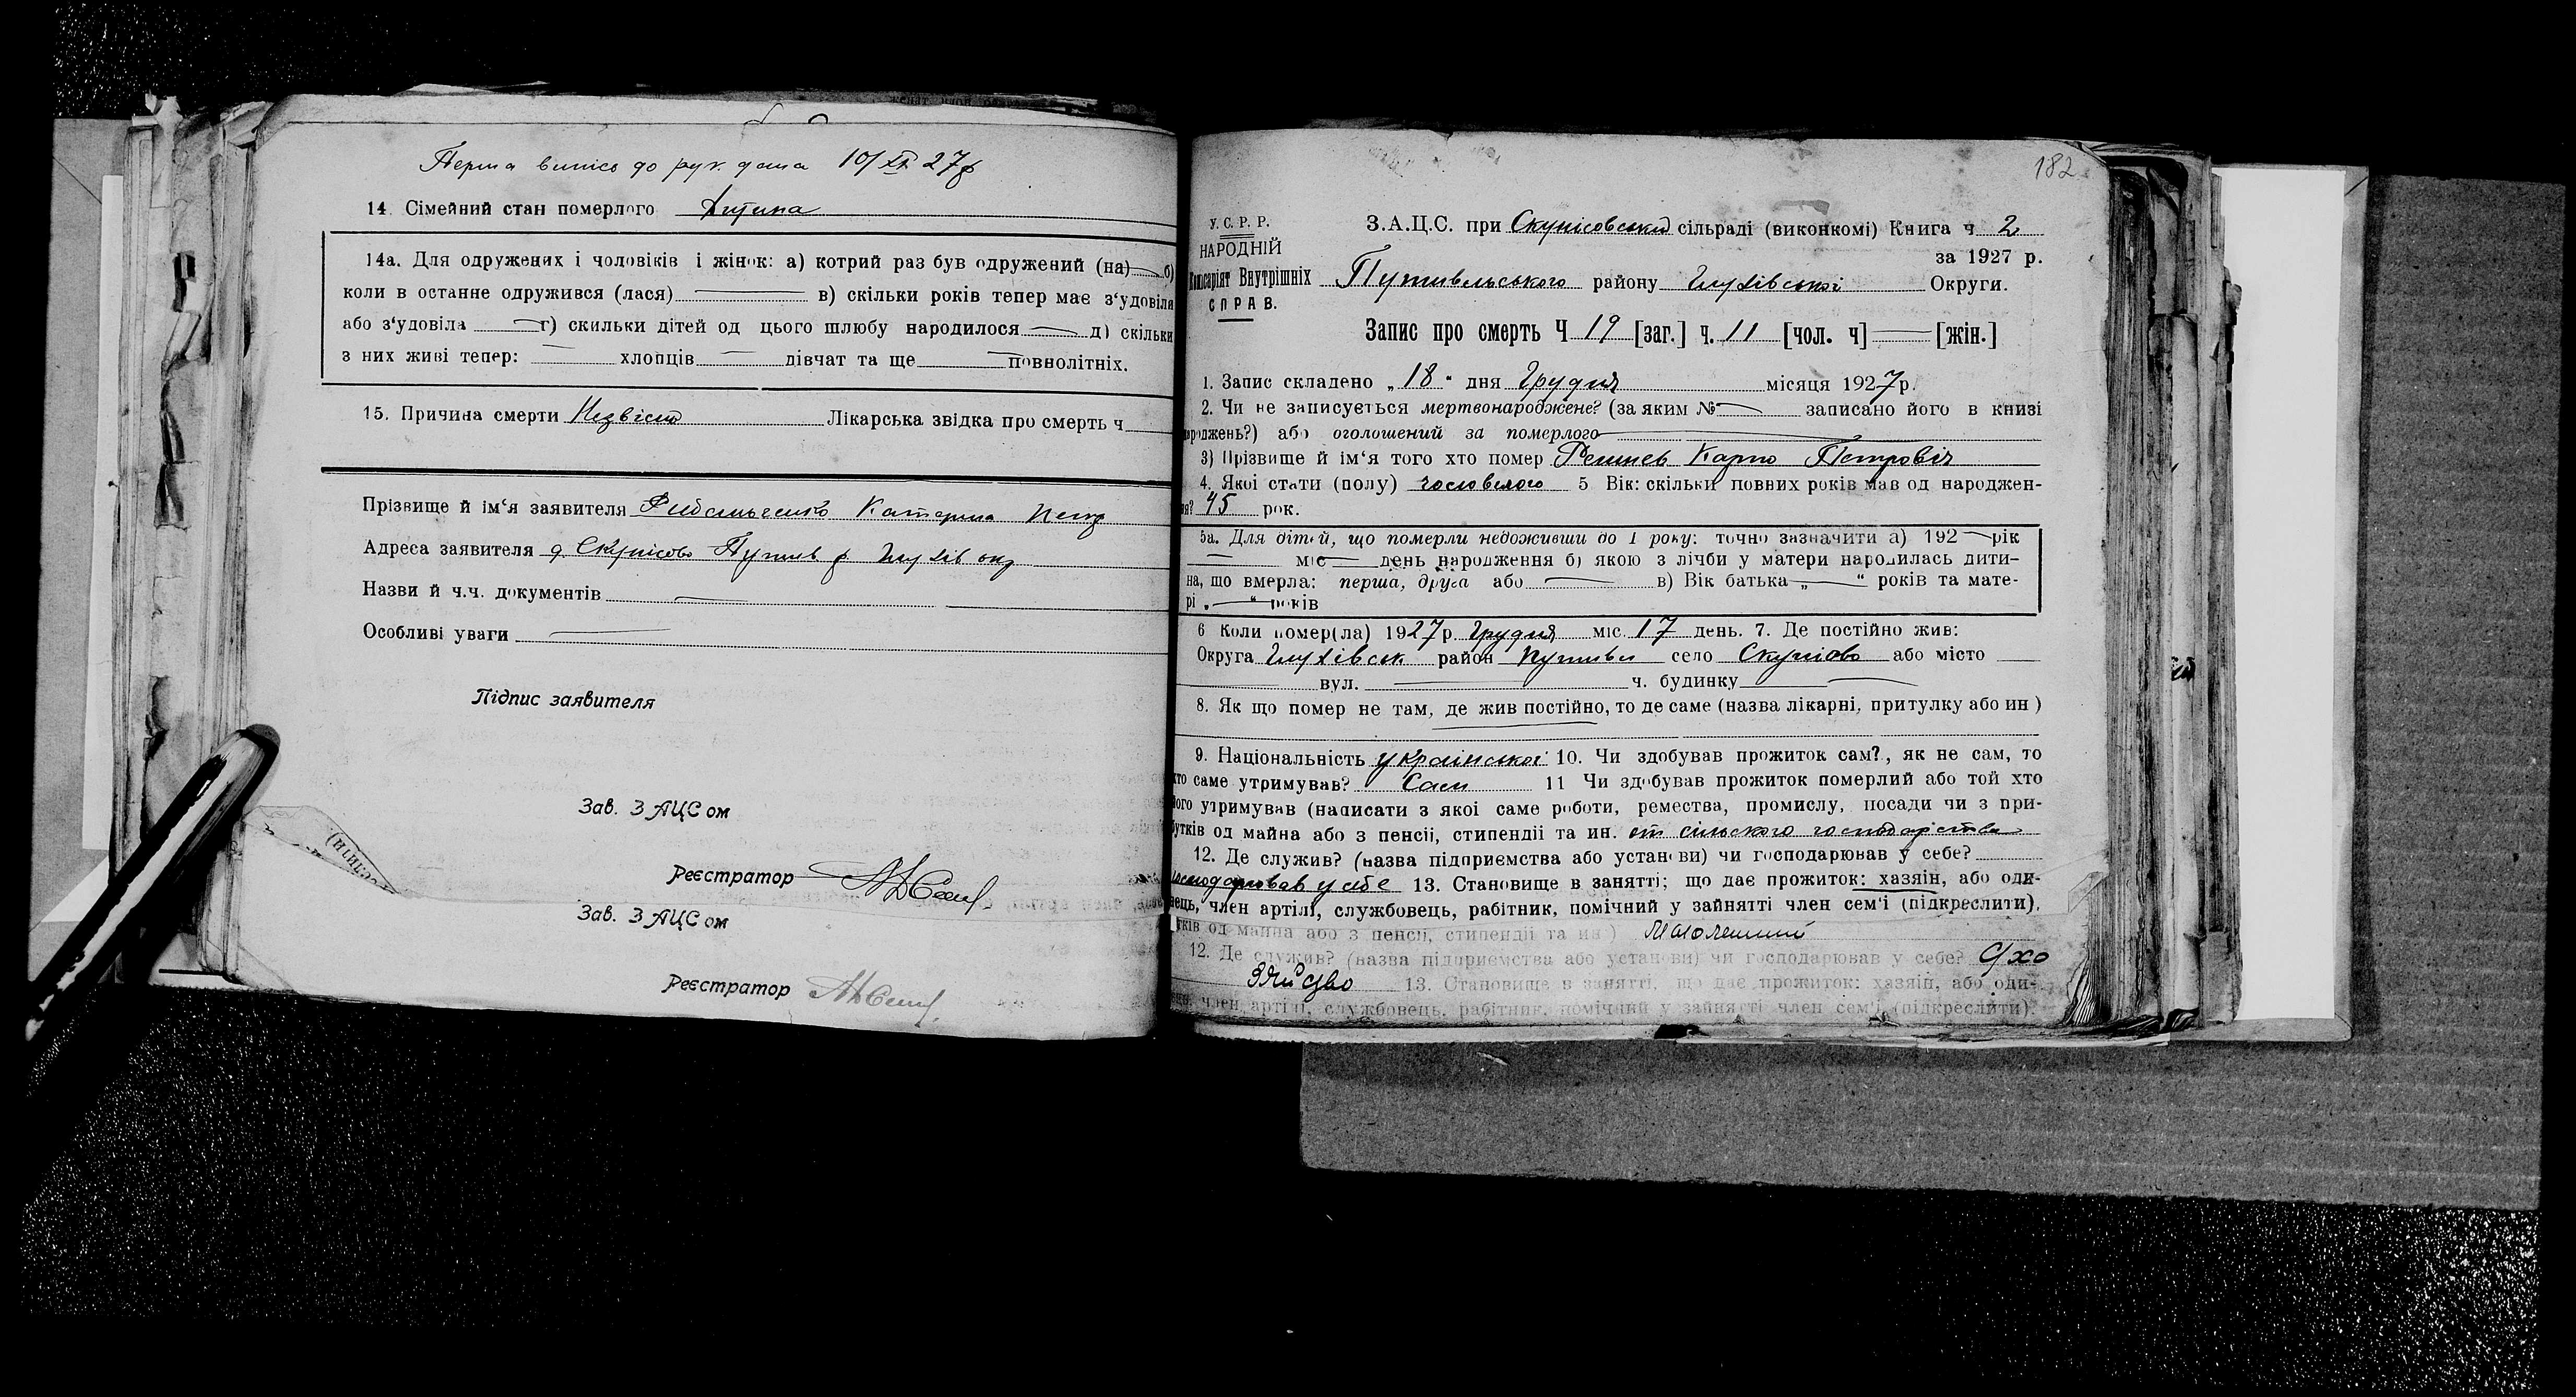 Перша випись до рук. дана 10/IX 27 р
14. Сімейний стан померлого Дитина
14а. Для одружених і чоловіків і жінок: а) котрий раз був одружений (на) — б)
коли в останне одружився (лася) — в) скільки років тепер має з'удовіла
або з'удовіла — г) скильки дітей од цього шлюбу народилося — д) скільки
з них живі тепер: — хлопців — дівчат та ще — повнолітніх.
15. Причина смерти Незвісно Лікарська звідка про смерть ч
Прізвище й ім'я заявителя Катерина Петр
Адреса заявителя с. Скунісово Путив р Глухів окр
Назви й ч.ч. документів —
Особливі уваги —
Підпис заявителя
Зав. ЗАЦСом
Реєстратор
Зав. ЗАЦСом
Реєстратор
182
У. С. Р. Р.
НАРОДНІЙ
Комісаріят Внутрішніх
СПРАВ.
З.А.Ц.С. при Скунісовській сільраді (виконкомі) Книга ч 2
за 1927 р.
Путивльського району Глухівської Округи.
Запис про смерть Ч 19 [заг.] ч. 11 [чол. ч] — [жін.]
1. Запис складено „18" дня Грудня місяця 1927 р.
2. Чи не записується мертвонароджене? (за яким № — записано його в книзі
народжень?) або оголошений за померлого —
3) Прізвище й ім'я того хто помер Карпо Петровіч
4. Якої стати (полу) чоловічого 5 Вік: скільки повних років мав од народжен-
ня? 45 рок.
5а. Для дітей, що померли недоживши до 1 року: точно зазначити а) 192 — рік
— міс — день народження б) якою з лічби у матери народилась дити-
на, що вмерла: перша, друга або — в) Вік батька „ — " років та мате-
рі „ — " років
6 Коли помер(ла) 1927 р. Грудня міс. 17 день. 7. Де постійно жив:
Округа Глухівськ район Путивл село Скунісово або місто —
— вул. — ч. будинку —
8. Як що помер не там, де жив постійно, то де саме (назва лікарні, притулку або ин )
9. Національність української 10. Чи здобував прожиток сам?, як не сам, то
хто саме утримував? Сам 11 Чи здобував прожиток померлий або той хто
його утримував (написати з якої саме роботи, ремества, промислу, посади чи з при-
бутків од майна або з пенсії, стипендії та ин. от сільского господарства
12. Де служив? (назва підприемства або установи) чи господарював у себе?
господарював у себе 13. Становище в занятті; що дає прожиток: хазяін, або оди-
нець, член артілі, службовець, рабітник, помічний у зайнятті член сем'і (підкреслити).
тків од майна або з пенсії, стипендії та ин )
12. Де служив? (назва підприемства або установи) чи господарював у себе?
13. Становище в занятті, що дає прожиток: хазяін, або оди-
нець, член артілі, службовець, рабітник, помічний у зайнятті член сем'і (підкреслити).